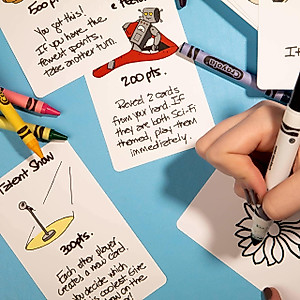 500 pts.
You got this!
If you have the
fewest points,
take another turn.
200 pts.
Reveal 2 cards
from your hand. If
they are both Sci-Fi
themed, play them
immediately.
crayola
Talent Show
300pts.
Each other player
creates a new card.
You decide which
coolest. Give
on the